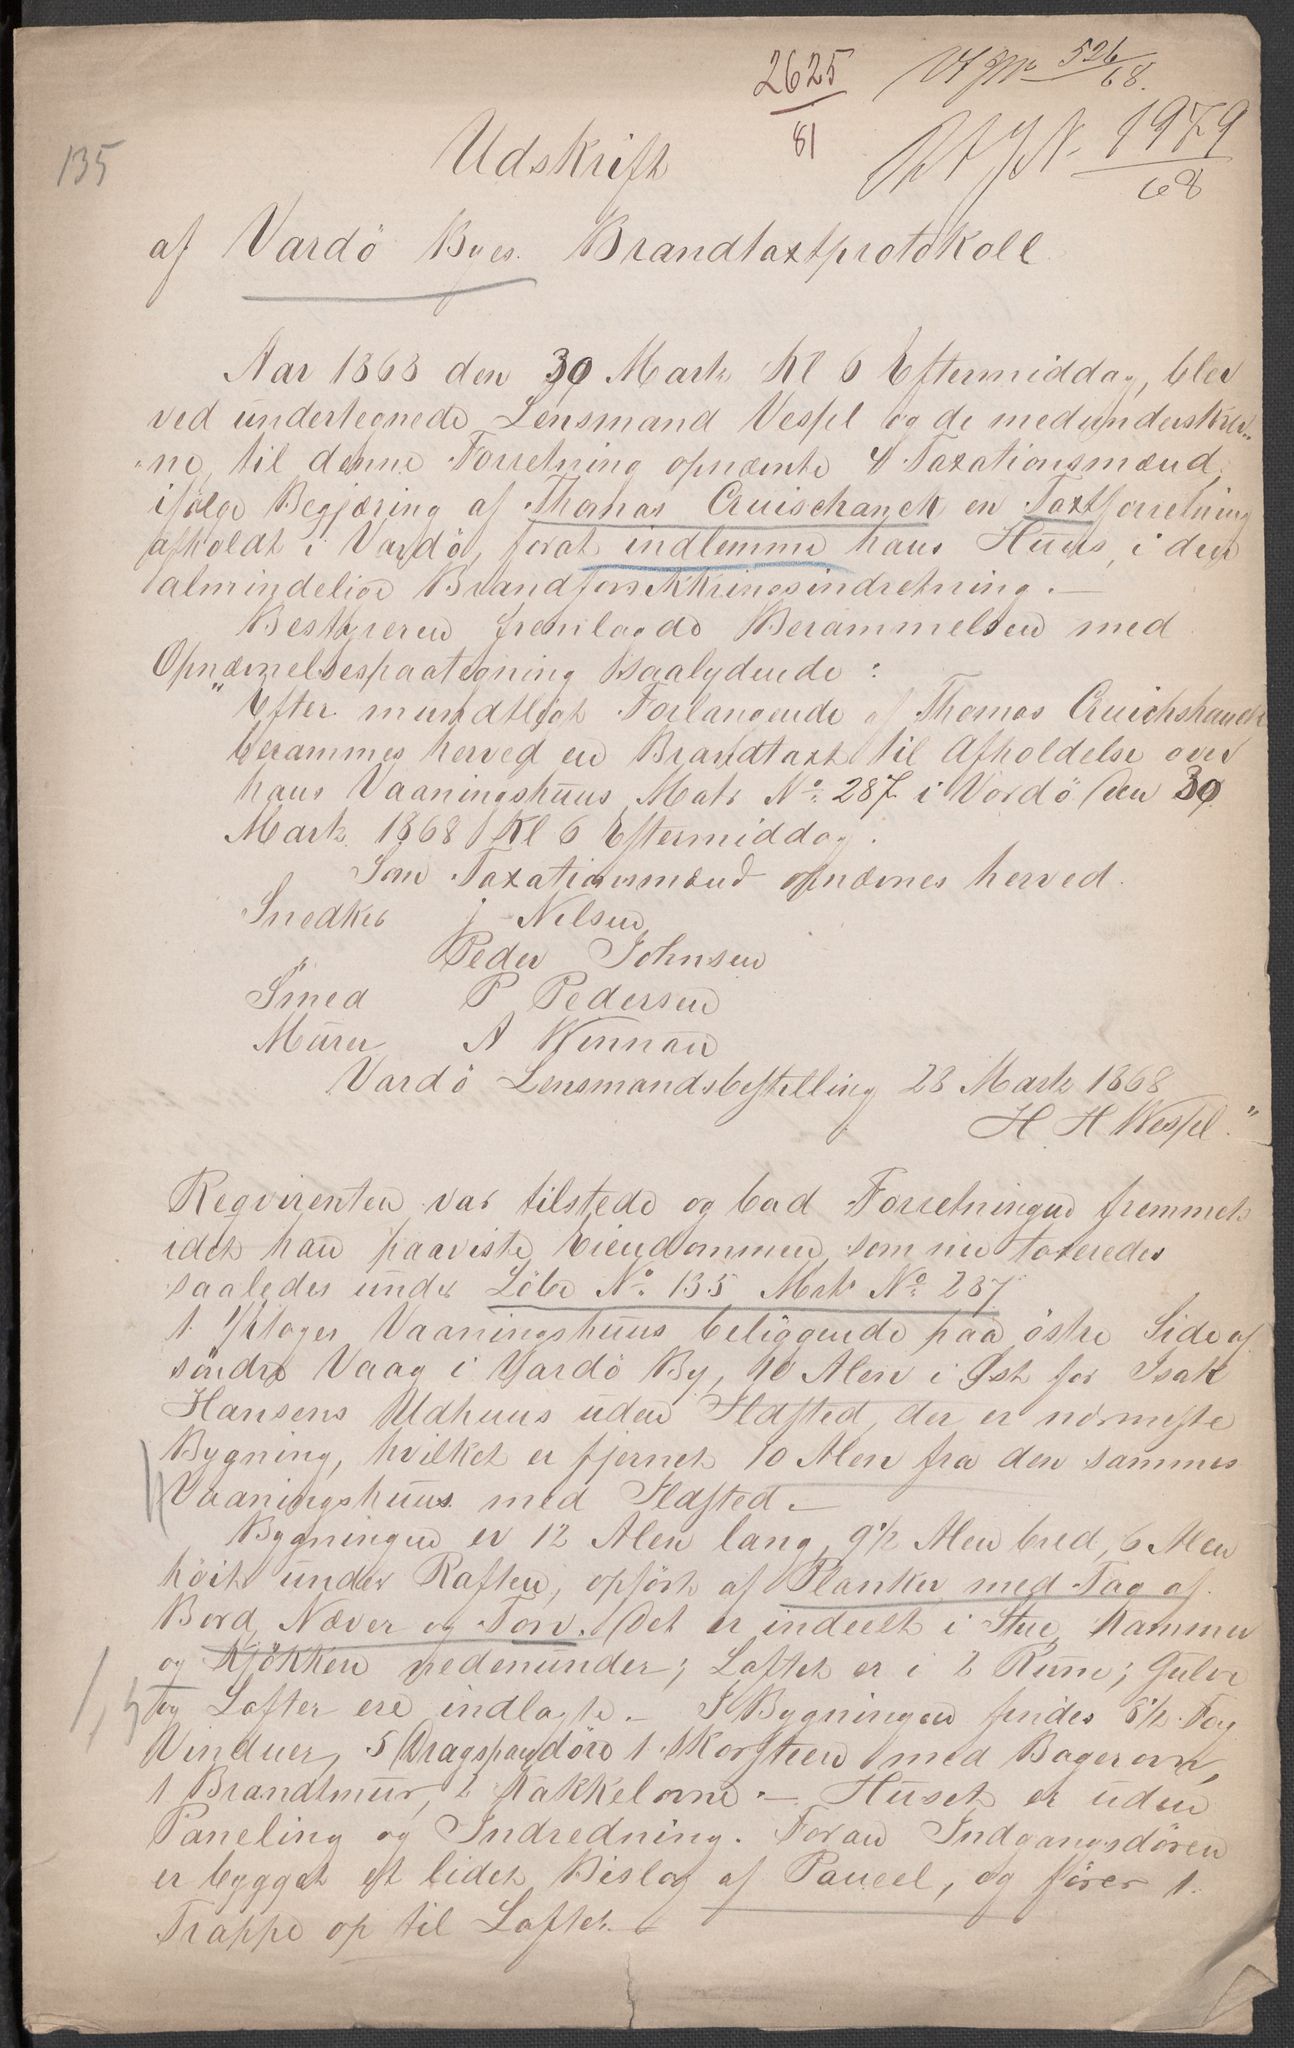 2625
81
Vf JNo 526
68.
1979
68
135
Udskrift
af Vardö Byes Brandtaxtprotokoll
Aar 1868 den 30 Marts Kl 6 Eftermiddag, blev
ved undertegnede Lensmand Vessel og de medunderskrev-
-ne, til denne Forretning opnævnte 4 Taxationsmænd,
ifølge Begjæring af Thomas Cruischanck en Taxtforretning
afholdt i Vardö, forat indlemme hans Huus, i den
almindelige Brandforsikkringsindretning. —
Bestyreren fremlagde Berammelsen med
Opnævnelsespaategning saalydende:
"Efter mundtligt Forlangende af Thomas Cruickshanck
berammes herved en Brandtaxt til Afholdelse over
hans Vaaningshuus Matr No 287 i Vardö den 30
Marts 1868 Kl 6 Eftermiddag.
Som Taxationsmænd opnævnes herved
Snedker J Nilsen
Peder Johnsen
Smed P Pedersen
Murer A Wennan
Vardö Lensmandsbestilling 23 Marts 1868
H H Wessel."
Reqvirenten var tilstede og bad Forretningen fremmet
idet han paaviste Eiendommen som nu taxeredes
saaledes under Löbe No 135 Matr No 287
1. 1½ Etages Vaaningshuus beliggende paa östre Side af
söndre Vaag i Vardö By, 10 Alen i Øst for Isak
Hansens Udhuus uden Ildsted, der er nærmeste
Bygning, hvilket er fjernet 10 Alen fra den sammes
Vaaningshuus med Ildsted. —
Bygningen er 12 Alen lang, 9½ Alen bred, 6 Alen
höit under Raften, opfört af Planker med Tag af
Bord, Næver og Torv. Det er indeelt i Stue, Kammer
og Kjökken nedenunder; Loftet er i 2 Rum; Gulve
og Lofter ere indlagte. — I Bygningen findes 8½ Fag
Vinduer, 5 Dragspaydöre 1 Skorsteen med Bagerovn,
1 Brandmur, 2 Kakkelovne. — Huset er uden
Paneling og Indredning. Foran Indgangsdören
er bygget et lidet Bislag af Paneel, og förer 1.
Trappe op til Loftet. —